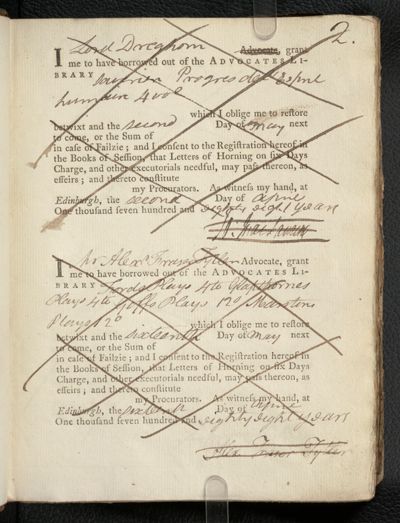 2.
I Lord Dreghorn Advocate, grant
me to have borrowed out of the ADVOCATES LI-
BRARY Progres de
humain 4 vol
which I oblige me to restore
betwixt and the second Day of May next
to come, or the Sum of
in case of Failzie; and I consent to the Registration hereof in
the Books of Session, that Letters of Horning on six Days
Charge, and other executorials needful, may pass thereon, as
effeirs; and thereto constitute
my Procurators. As witness my hand, at
Edinburgh, the second Day of Aprile
One thousand seven hundred and eighty eight years
I Mr Alexr Fraser Tytler Advocate, grant
me to have borrowed out of the ADVOCATES LI-
BRARY Fords Plays 4to Glapthornes
Plays 4to Goffs Plays 12o Marstons
Plays 12o
which I oblige me to restore
betwixt and the sixteenth Day of May next
to come, or the Sum of
in case of Failzie; and I consent to the Registration hereof in
the Books of Session, that Letters of Horning on six Days
Charge, and other executorials needful, may pass thereon, as
effeirs; and thereto constitute
my Procurators. As witness my hand, at
Edinburgh, the sixteenth Day of Aprile
One thousand seven hundred and eighty eight years
Alex Fraser Tytler